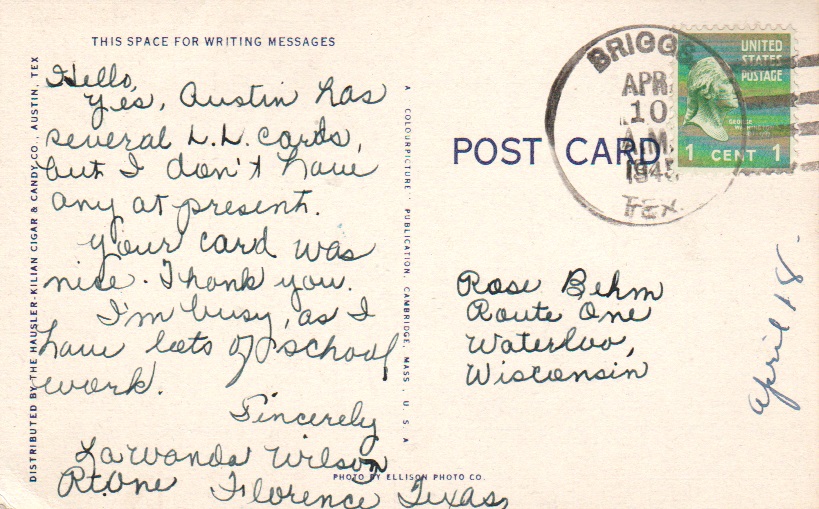 THIS SPACE FOR WRITING MESSAGES
Hello,
Yes, Austin has
several L.L. cards,
but I don't have
any at present.
Your card was
nice. Thank you.
I'm busy, as I
have lots of school
work.
Sincerely
Lawanda Wilson
Rt. One Florence Texas
DISTRIBUTED BY THE HAUSLER-KILIAN CIGAR & CANDY CO., AUSTIN, TEX
A "COLOURPICTURE" PUBLICATION, CAMBRIDGE, MASS., U. S. A
PHOTO BY ELLISON PHOTO CO.
POST CARD
BRIGGS
APR
10
A.M.
1945
TEX.
UNITED
STATES
POSTAGE
GEORGE
1 CENT 1
Rose Behm
Route One
Waterloo,
Wisconsin
April 18.